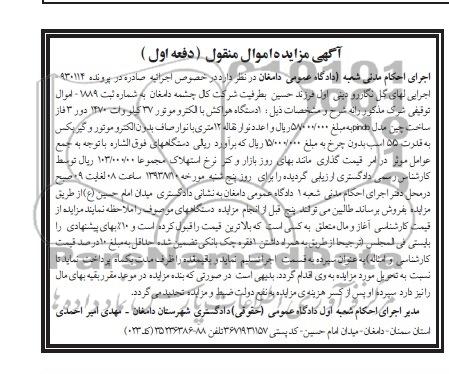 آگهی مزایده اموال منقول (دفعه اول)
اجرای احکام مدنی شعبه ۱ دادگاه عمومی دامغان در نظر دارد در خصوص اجرائیه صادره در پرونده ۹۳۰۱۱۴
اجرایی لهای گل نگار رودینی اول فرزند حسین بطرفیت شرکت کل چشمه دامغان به شماره ثبت ۱۸۸۹ - اموال
توقیفی شرک مذکور رابه شرح و مشخصات ذیل : ۱دستگاه هواکش با الکتروموتور ۳۷ کیلو وات ۱۴۷۰ دور ۳فاز
ساخت چین مدل pindb به مبلغ ۵۸/۰۰۰/۰۰۰ ریال و ۱عدد نوار نقاله ۱۲متری با نوار صاف بدون الکتروموتور و گیربکس
به قدرت ۵۵ اسب بدون چرخ به مبلغ ۴۵/۰۰۰/۰۰۰ ریال که برآورد ریالی دستگاههای فوق الشاره با توجه به جمع
عوامل موثر در امر قیمت گذاری مانند بهای روز بازار و کثر نرخ استهلاک مجموعا ۱۰۳/۰۰۰/۰۰ ریال توسط
کارشناس رسمی دادگستری ارزیابی گردیده را برای روز پنج شنبه مورخه ۱۳۹۳/۸/۱۰ ساعت ۰۸ لغایت ۰۹ صبح
درمحل دفتر اجرای احکام مدنی شعبه ۱ دادگاه عمومی دامغان به نشانی دادگستری میدان امام حسین (ع) از طریق
مزایده بفروش برساند طالبین می توانند پنج قبل از انجام مزایده دستگاههای موصوف را ملاحظه نمایند مزایده از
قیمت کارشناسی آغاز و مال متعلق به کسی است که بالاترین قیمت را قبول کرده است و ۱۰٪ بهای پیشنهادی را
بایستی فی المجلس (ترجیحا از طریق به همراه داشتن ۱فقره چک بانکی تضمین شده حداقل به مبلغ ۱۰درصد قیمت
کارشناسی و امثاله) به عنوان سپرده به قسمت اجرا تسلیم نماید و بقیه مدت را ظرف مدت یکماه پرداخت نماید تا
نسبت به تحویل مورد مزایده به وی اقدام گردد. بدیهی است در صورتی که برنده مزایده در موعد مقرر بقیه بهای مال
را نپردازد سپرده او پس از کسر هزینه ی مزایده به نفع دولت ضبط و مزایده تجدید می گردد.
مدیر اجرای احکام شعبه اول دادگاه عمومی (حقوقی) دادگستری شهرستان دامغان - مهدی امیر احمدی
استان سمنان- دامغان- میدان امام حسین- کدپستی ۳۶۷۱۹۳۱۱۵۷ تلفن ۸۸-۳۵۲۳۶۳۸۶ (کد ۰۲۳)